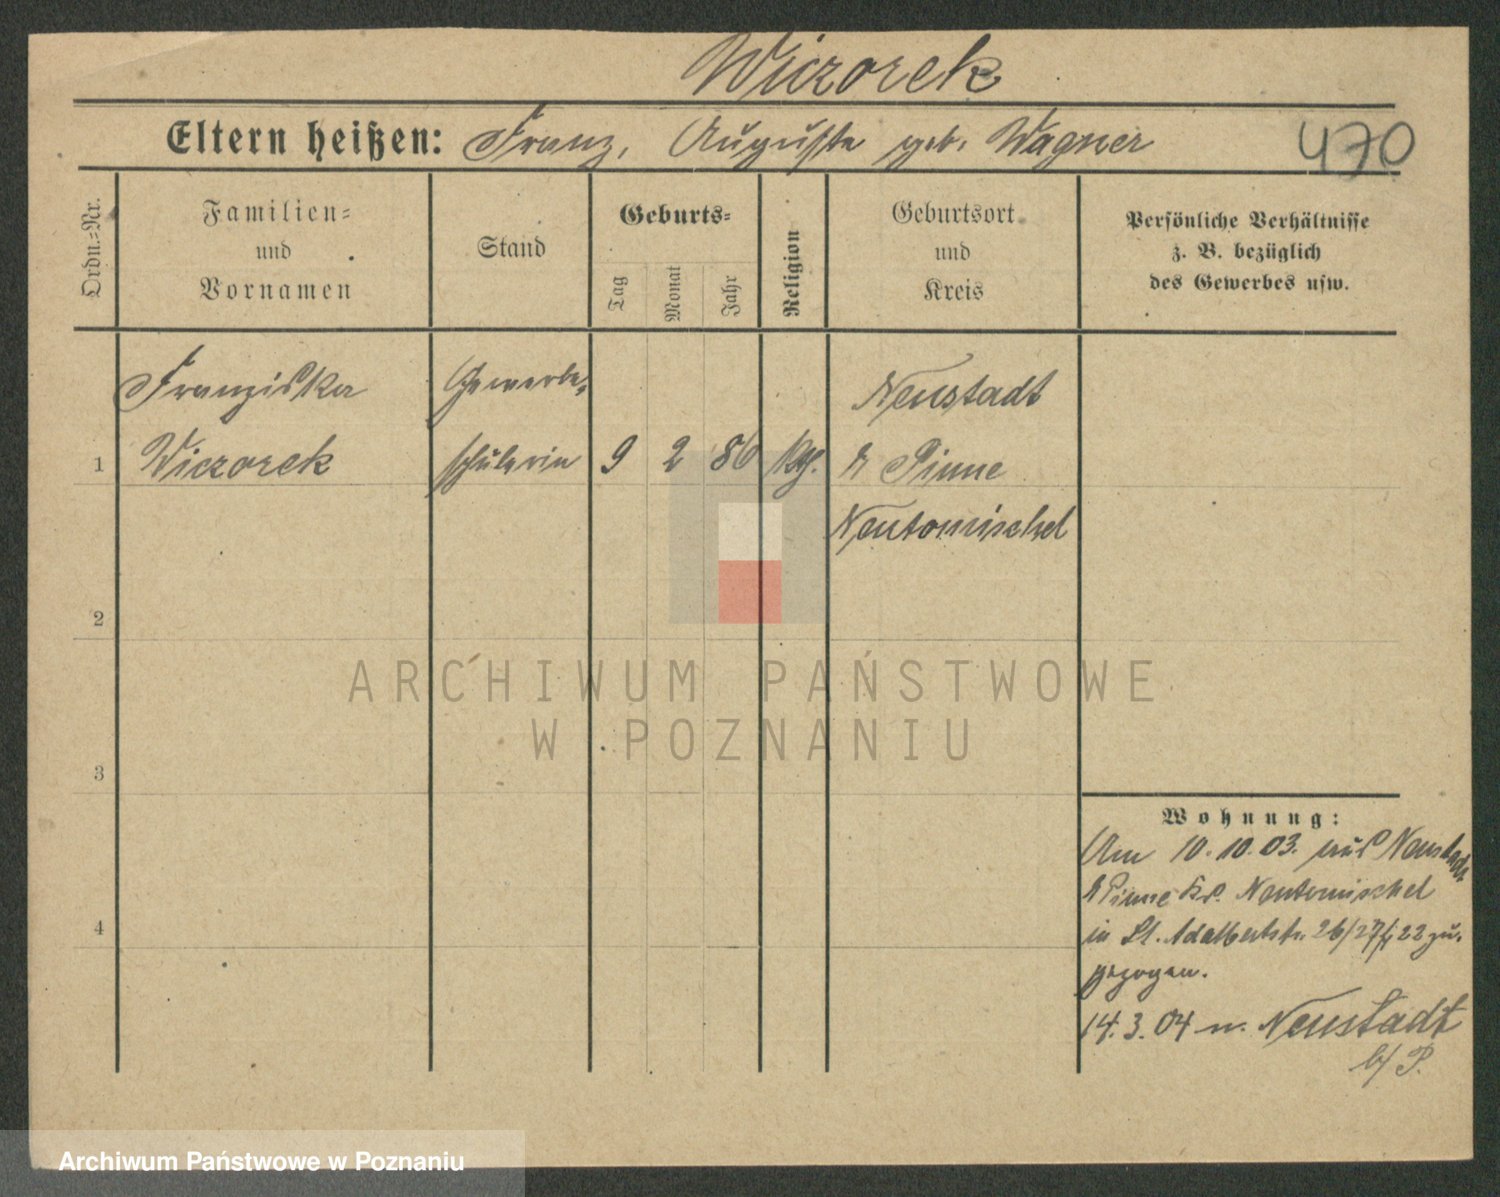 Wiczorek
Eltern heißen: Franz, Auguste geb. Wagner
470
Ordn.=Nr.
Familien=
und
Vornamen
Stand
Geburts=
Tag
Monat
Jahr
Religion
Geburtsort
und
Kreis
Persönliche Verhältnisse
z. B. bezüglich
des Gewerbes usw.
Franziska Gewerbe= Neustadt
1 Wiczorek schülerin 9 2 86 kth. b Pinne
Neutomischel
2
3
4
Wohnung:
Am 10.10.03. aus Neustadt
b Pinne Kr. Neutomischel
in St. Adalbertstr. 26/27 22 zu=
gezogen.
14.3.04 n. Neustadt
b/P.
ARCHIWUM PAŃSTWOWE
W POZNANIU
Archiwum Państwowe w Poznaniu